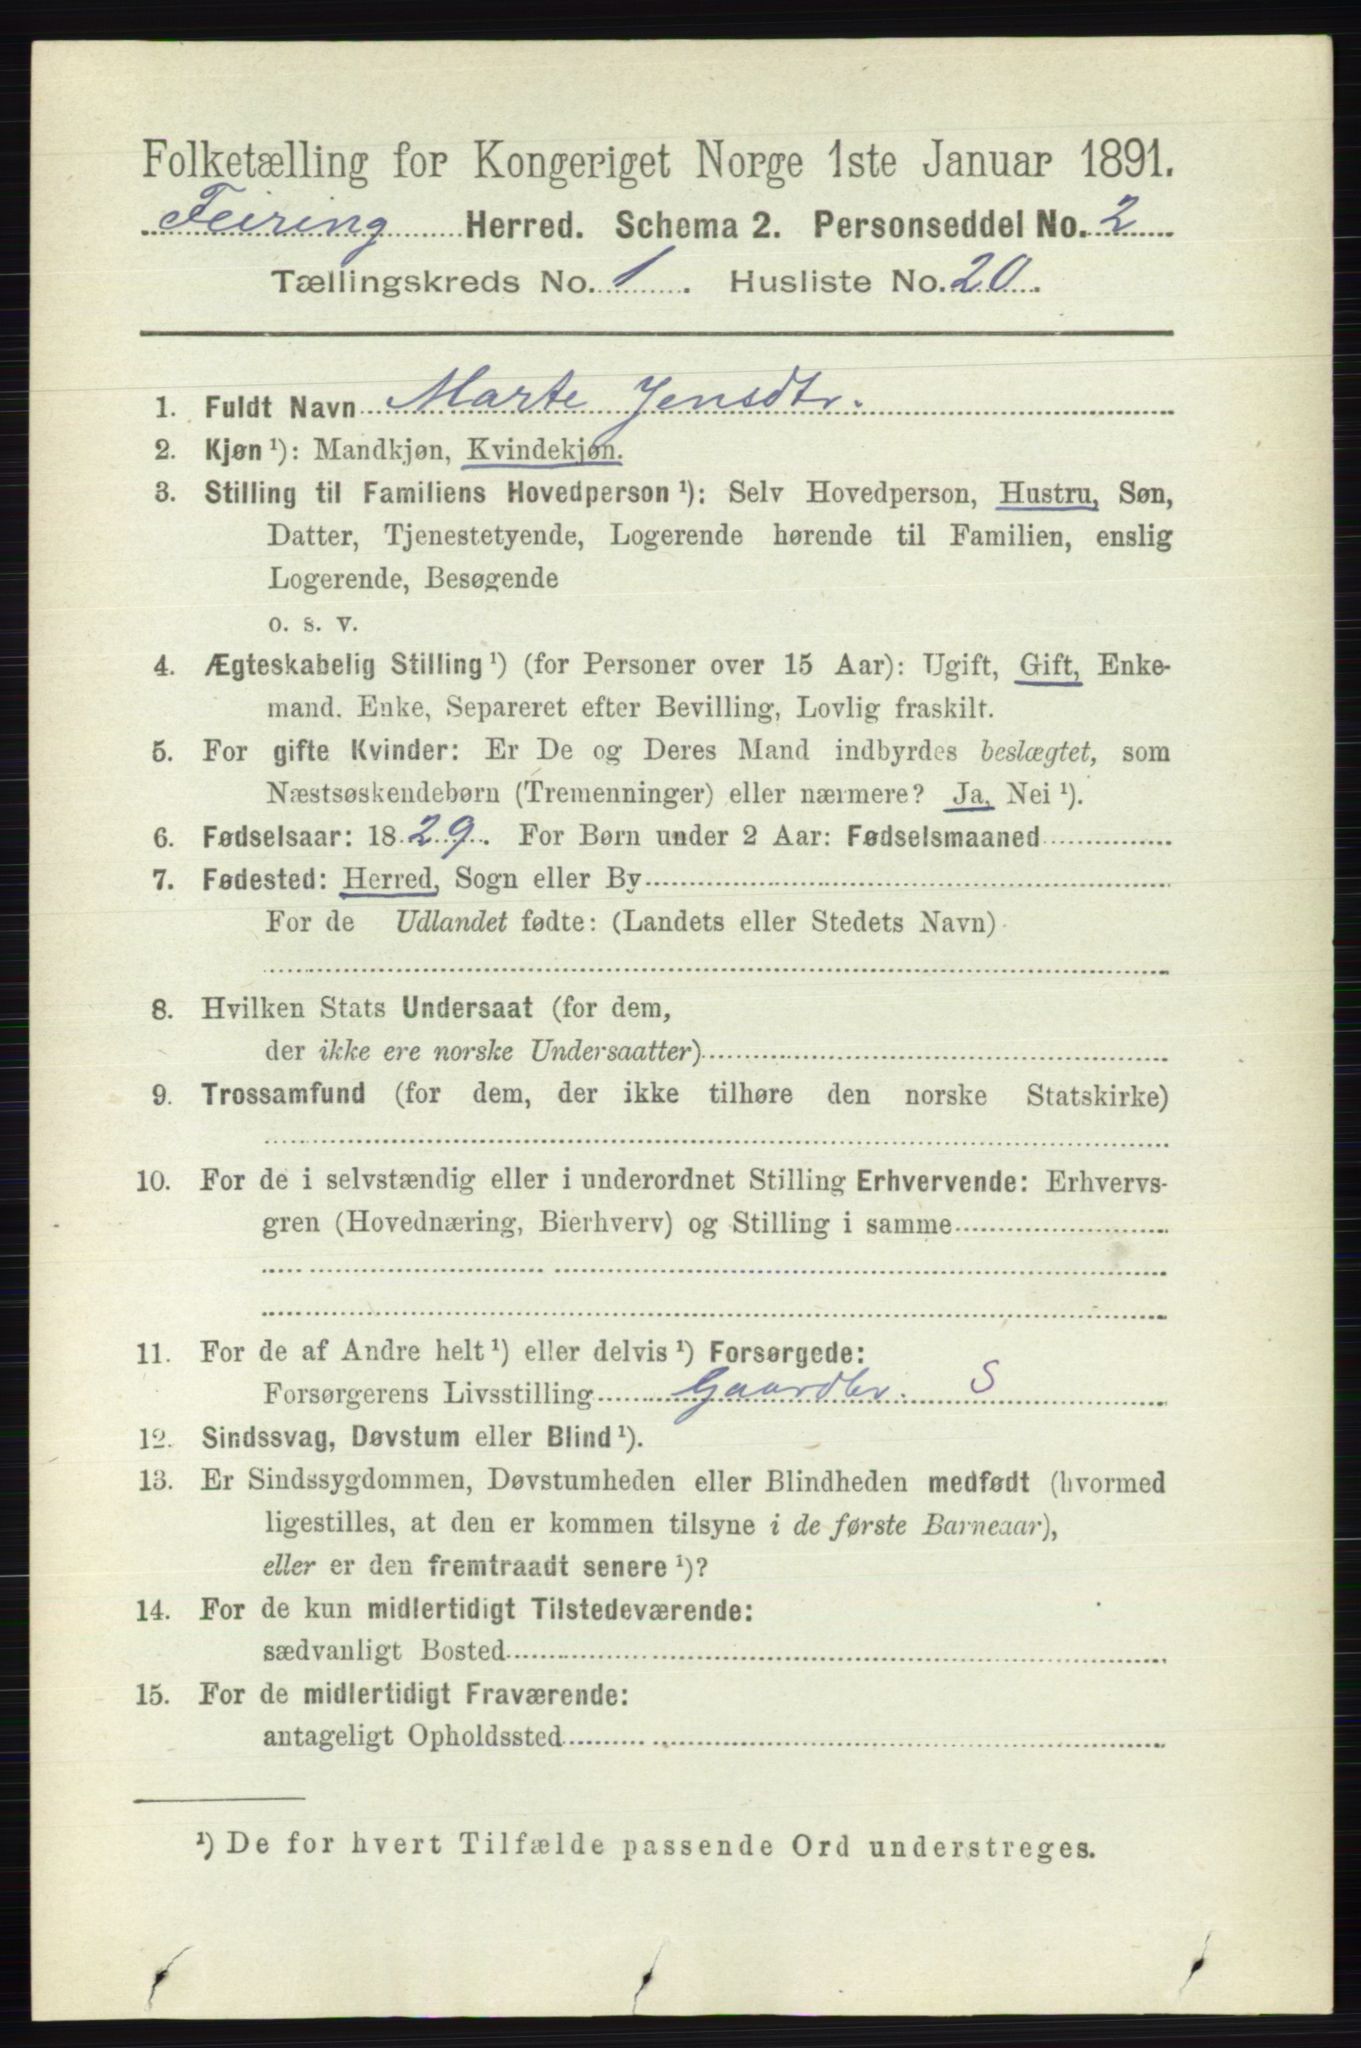 Folketælling for Kongeriget Norge 1ste Januar 1891.
Feiring Herred. Schema 2. Personseddel No. 2
Tællingskreds No. 1. Husliste No. 20.
1. Fuldt Navn Marte Jensdtr.
2. Kjøn ¹): Mandkjøn, Kvindekjøn.
3. Stilling til Familiens Hovedperson ¹): Selv Hovedperson, Hustru, Søn,
Datter, Tjenestetyende, Logerende hørende til Familien, enslig
Logerende, Besøgende
o. s. v.
4. Ægteskabelig Stilling ¹) (for Personer over 15 Aar): Ugift, Gift, Enke-
mand. Enke, Separeret efter Bevilling, Lovlig fraskilt.
5. For gifte Kvinder: Er De og Deres Mand indbyrdes beslægtet, som
Næstsøskendebørn (Tremenninger) eller nærmere? Ja, Nei ¹).
6. Fødselsaar: 1829. For Børn under 2 Aar: Fødselsmaaned
7. Fødested: Herred, Sogn eller By
For de Udlandet fødte: (Landets eller Stedets Navn)
8. Hvilken Stats Undersaat (for dem,
der ikke ere norske Undersaatter)
9. Trossamfund (for dem, der ikke tilhøre den norske Statskirke)
10. For de i selvstændig eller i underordnet Stilling Erhvervende: Erhvervs-
gren (Hovednæring, Bierhverv) og Stilling i samme
11. For de af Andre helt ¹) eller delvis ¹) Forsørgede:
Forsørgerens Livsstilling Gaardbr. S
12. Sindssvag, Døvstum eller Blind ¹).
13. Er Sindssygdommen, Døvstumheden eller Blindheden medfødt (hvormed
ligestilles, at den er kommen tilsyne i de første Barneaar),
eller er den fremtraadt senere ¹)?
14. For de kun midlertidigt Tilstedeværende:
sædvanligt Bosted
15. For de midlertidigt Fraværende:
antageligt Opholdssted
¹) De for hvert Tilfælde passende Ord understreges.